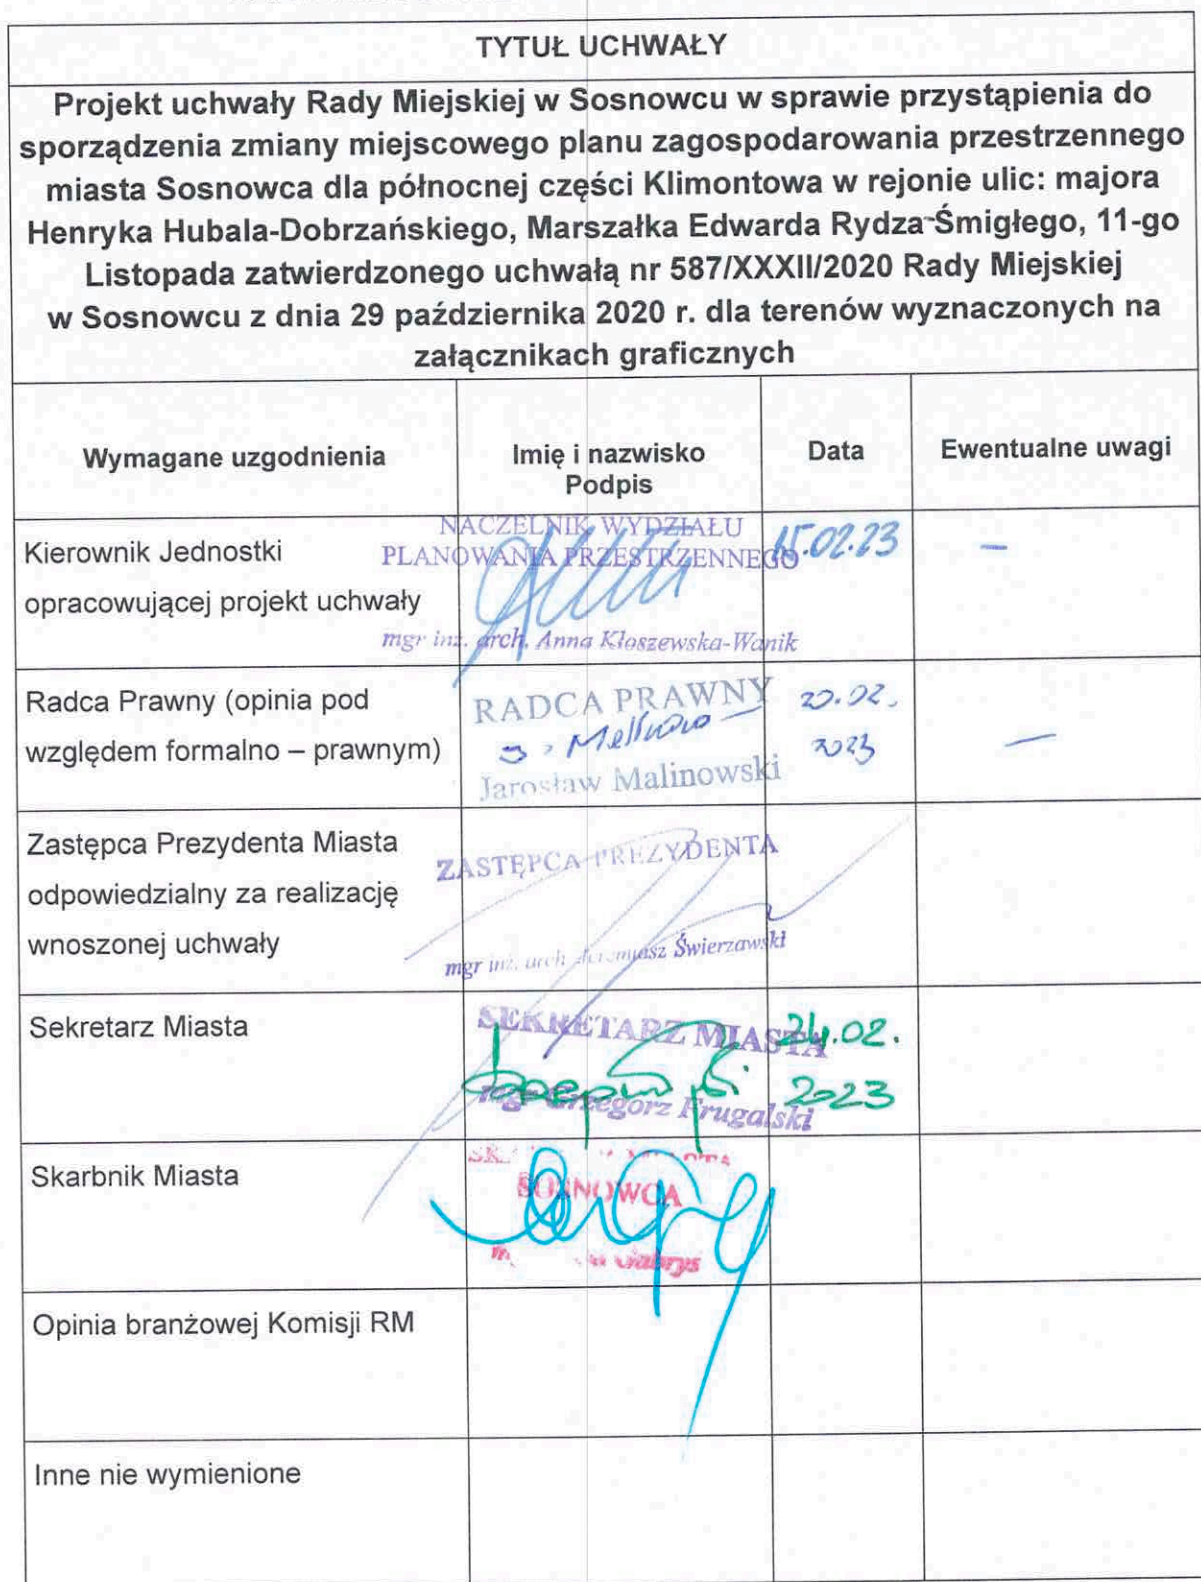 TYTUŁ UCHWAŁY
Projekt uchwały Rady Miejskiej w Sosnowcu w sprawie przystąpienia do
sporządzenia zmiany miejscowego planu zagospodarowania przestrzennego
miasta Sosnowca dla północnej części Klimontowa w rejonie ulic: majora
Henryka Hubala-Dobrzańskiego, Marszałka Edwarda Rydza-Śmigłego, 11-go
Listopada zatwierdzonego uchwałą nr 587/XXXII/2020 Rady Miejskiej
w Sosnowcu z dnia 29 października 2020 r. dla terenów wyznaczonych na
załącznikach graficznych
Wymagane uzgodnienia
Imię i nazwisko
Podpis
Data
Ewentualne uwagi
Kierownik Jednostki
opracowującej projekt uchwały
NACZELNIK WYDZIAŁU
PLANOWANIA PRZESTRZENNEGO
mgr inż. arch. Anna Kłoszewska-Wanik
15.02.23
–
Radca Prawny (opinia pod
względem formalno – prawnym)
RADCA PRAWNY
Jarosław Malinowski
20.02.
2023
—
Zastępca Prezydenta Miasta
odpowiedzialny za realizację
wnoszonej uchwały
ZASTĘPCA PREZYDENTA
mgr inż. arch Świerzawski
Sekretarz Miasta
SEKRETARZ MIASTA
mgr Grzegorz Frugalski
24.02.
2023
Skarbnik Miasta
SOSNOWCA
Gabrys
Opinia branżowej Komisji RM
Inne nie wymienione